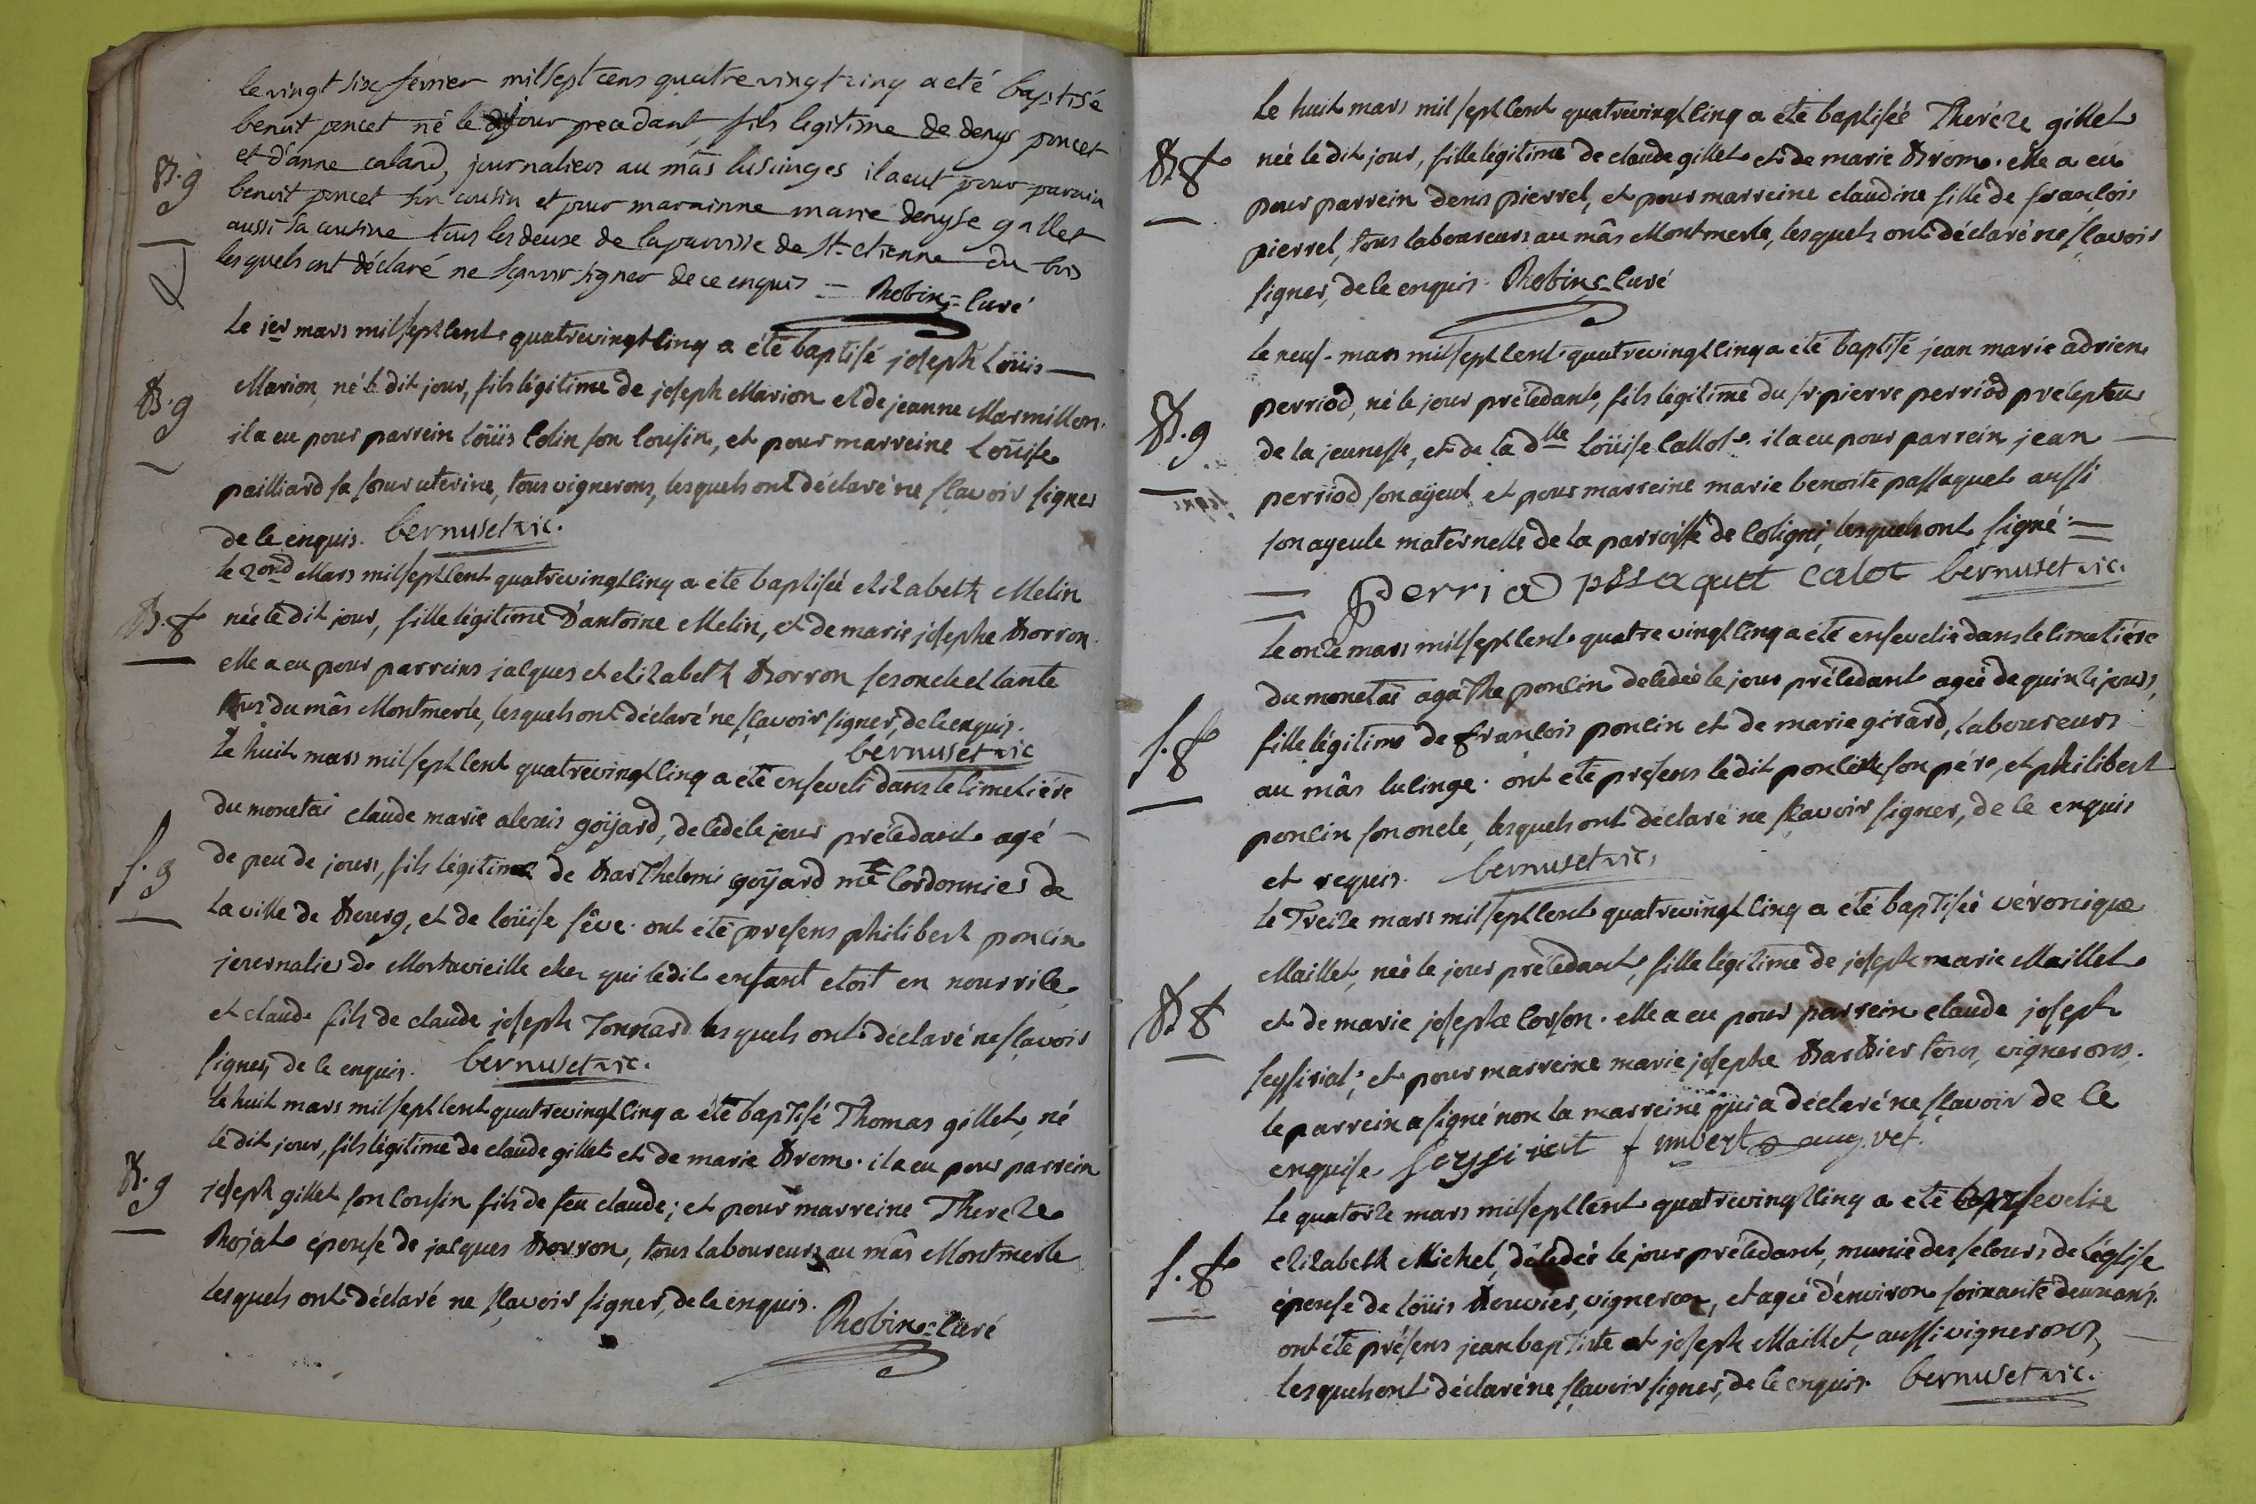 le vingt six fevrier mil sept cens quatre vingt cinq a eté baptisé
B. g
benoit poncet né le jour precedant, fils legitime de denys poncet
et d'anne caland, journaliers au mâs lusinges il a eut pour parain
benoit poncet son cousin et pour marainne marie denyse gallet
aussi sa cousine tous les deux de la paroisse de St. etienne du bois
lesquels ont déclaré ne sçavoir signer de ce enquis = Robin = curé
Le 1er mars mil sept cent quatrevingt cinq a été baptisé joseph Loüis
B. g
Marion, né le dit jour, fils légitime de joseph Marion et de jeanne Marmillon.
il a eu pour parrein Loüis Colin son cousin, et pour marreine Loüise
pailliard sa sœur uterine, tous vignerons, lesquels ont déclaré ne sçavoir signer
de ce enquis. bernuset vic.
le 2ond Mars mil sept cent quatrevingt cinq a eté baptisée elizabeth Melin
B. f
née le dit jour, fille légitime d'antoine Melin, et de marie josephe Borron.
elle a eu pour parreins jacques et elizabeth Borron ses oncle et tante
tous du mâs Montmerle, lesquels ont déclaré ne sçavoir signer, de ce enquis.
bernuset vic
Le huit mars mil sept cent quatrevingt cinq a eté enseveli dans le cimetiére
du monetai claude marie alexis goÿard, décédé le jour précédant agé
S. g
de peu de jours, fils légitime de Barthelemi goÿard me Cordonnier de
la ville de Bourg, et de loüise féve. ont été presens philibert poncin
journalier de Mortavieille chez qui ledit enfant etoit en nourrice
et claude fils de claude joseph Tonnard lesquels ont déclaré ne sçavoir
signer, de ce enquis. bernuset vic.
Le huit mars mil sept cent quatrevingt cinq a été baptisé Thomas gillet, né
le dit jour, fils légitime de claude gillet et de marie Brom. il a eu pour parrein
B. g
joseph gillet son cousin fils de feu claude; et pour marreine Thereze
Rojat épouse de jacques Borron, tous laboureurs au mâs Montmerle
lesquels ont déclaré ne sçavoir signer, de ce enquis.
Robin = curé
Le huit mars mil sept cent quatrevingt cinq a été baptisée Theréze gillet
B. f
née le dit jour, fille légitime de claude gillet et de marie Brom. elle a eu
pour parrein denis pierrel, et pour marreine claudine fille de françois
pierrel, tous laboureurs au mâs Montmerle, lesquels ont déclaré ne sçavoir
signer, de ce enquis. Robin = curé
Le neuf mars mil sept cent quatrevingt cinq a été baptisé jean marie adrien
B. g
perriod, né le jour précédant, fils légitime du sr pierre perriod précepteur
de la jeunesse, et de la dlle Loüise Callot. il a eu pour parrein jean
perriod son aÿeul et pour marreine marie benoite passaquet aussi
son ayeule maternelle de la parroisse de Coligni, lesquels ont signé.
Perriod passaquet calot bernuset vic.
Le onze mars mil sept cent quatre vingt cinq a été ensevelie dans le cimetiére
du monetai agathe poncin décedée le jour précédant agée de quinze jours,
S. f
fille légitime de françois poncin et de marie girard, laboureurs
au mâs lucinge. ont eté presens ledit poncin son pére, et philibert
poncin son oncle, lesquels ont déclaré ne sçavoir signer, de ce enquis
et requis. bernuset vic.
Le Treize mars mil sept cent quatrevingt cinq a eté baptisée véronique
Maillet, née le jour précédant, fille légitime de joseph marie Maillet
B. f
et de marie josephe Corson. elle a eu pour parrein claude joseph
seyssiriat; et pour marreine marie josephe Barbier tous, vignerons.
le parrein a signé non la marreine qui a déclaré ne sçavoir de ce
enquise. seyssiriat
Le quatorze mars mil sept cent quatrevingt cinq a eté ensevelie
S. f
elizabeth Michel, décédée le jour précédant, munie des secours de l'église
épouse de loüis Bouvier, vigneron, et agée d'environ soixante deux ans.
ont été présens jean baptiste et joseph Maillet, aussi vignerons,
lesquels ont déclaré ne sçavoir signer, de ce enquis. bernuset vic.